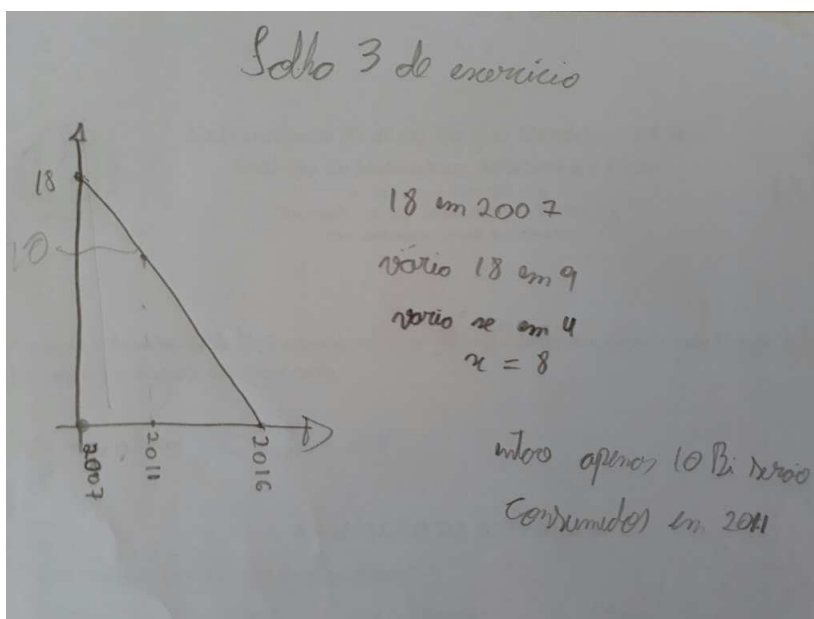 Folho 3 de exercício
18
10
2007
2011
2016
18 em 2007
vário 18 em 9
vario x em 4
x = 8
então apenos 10 Bi serão
Consumidos em 2011